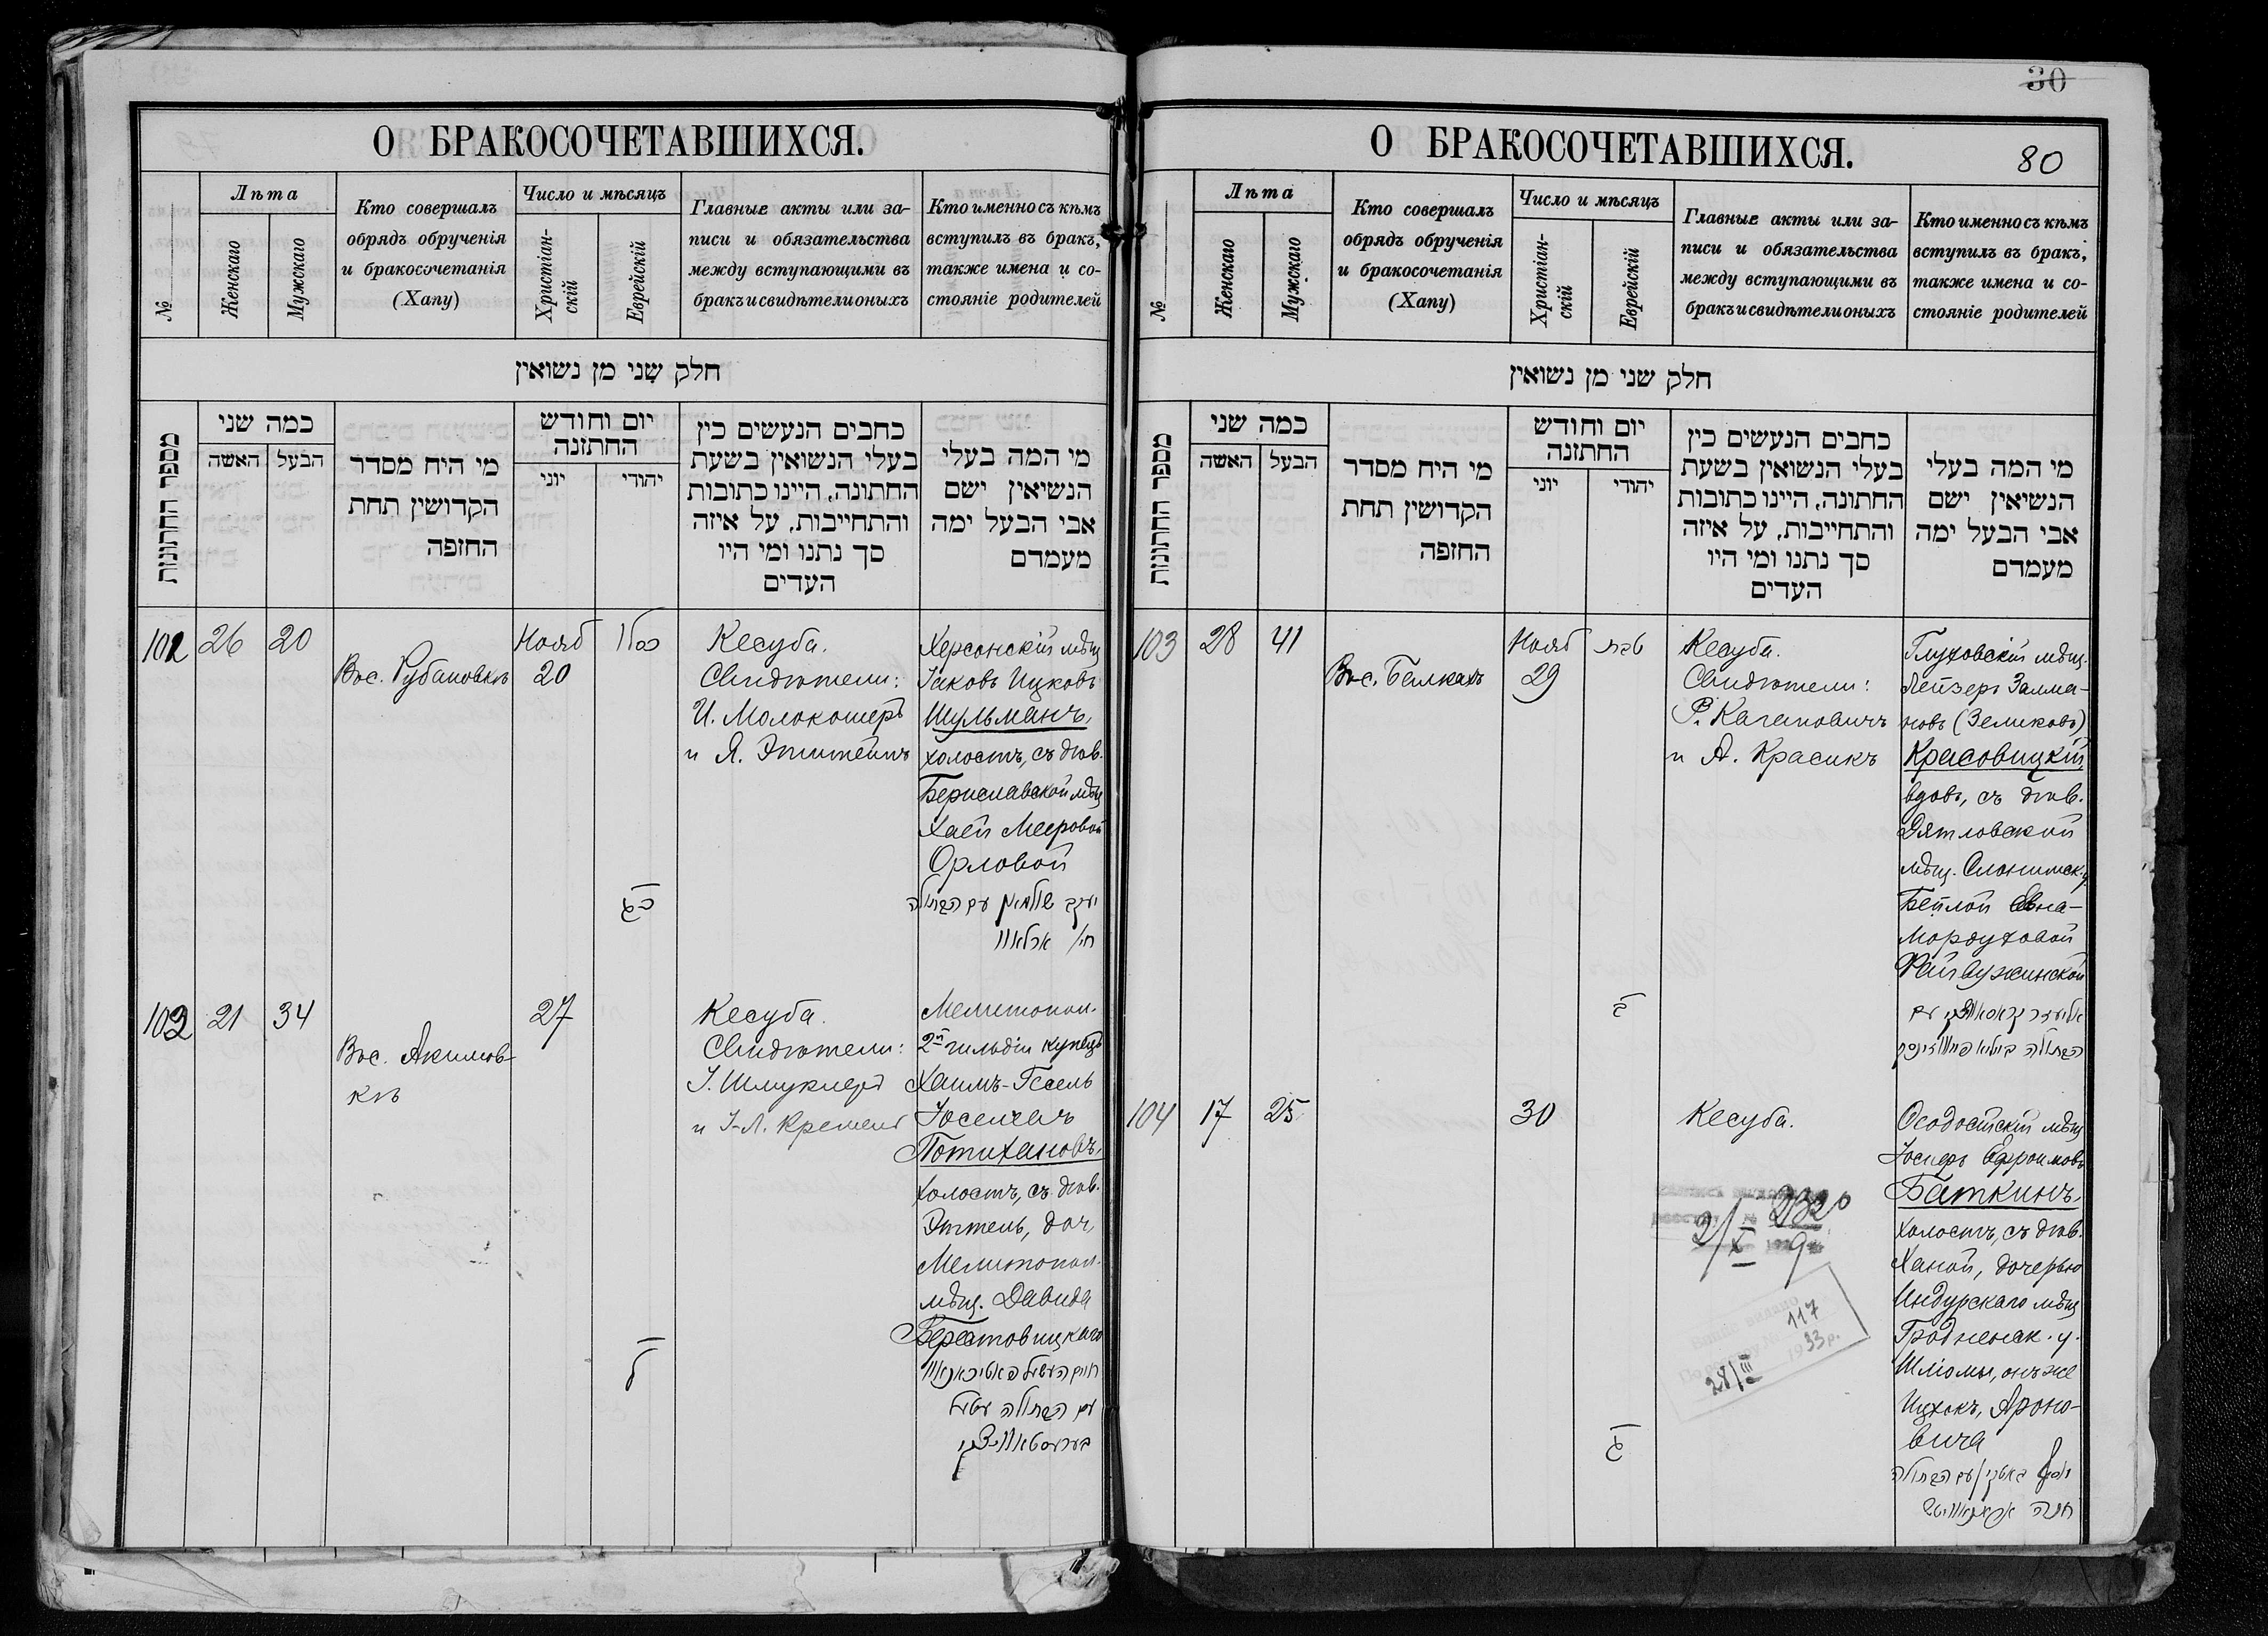 О БРАКОСОЧЕТАВШИХСЯ.
№
Лѣта
Женскаго
Мужскаго
Кто совершалъ
обрядъ обрученія
и бракосочетанія
(Хапу)
Число и мѣсяцъ
Христіан-
скій
Еврейскій
Главные акты или за-
писи и обязательства
между вступающими въ
бракъ и свидѣтели оныхъ
Кто именно съ кѣмъ
вступилъ въ бракъ,
также имена и со-
стояніе родителей
חלק שני מן נשואין
מספר החתונות
כמה שני
האשה
הבעל
מי היח מסדר
הקדושין תחת
החזפה
יום וחודש
החתזנה
יוני
יהודי
כחבים הנעשים כין
בעלי הנשואין בשעת
החתונה, היינו כתובות
והתחייבות, על איזה
סך נתנו ומי היו
העדים
מי המה בעלי
הנשיאין ישם
אבי הבעל ימה
מעמדם
101
26
20
Вос. Рубановкѣ
Нояб
20
כסלו
כג
Кесуба.
Свидѣтели:
И. Молокошеръ
и Я. Эпштейнъ
Херсонскій мѣщ
Іаковъ Ицковъ
Шульманъ,
холостъ, съ дѣв.
Бериславской мѣщ
Хаей Мееровой
Орловой
יעקב שולמאן עם הבתולה
חי' ארלאוו
102
21
34
Вос. Акимов-
кѣ
27
ל
Кесуба.
Свидѣтели:
І. Шмуклеръ
и І-Л. Кремень
Мелитопол.
2й гильдіи купецъ
Хаимъ-Гесель
Іоселевъ
Потихановъ,
холостъ, съ дѣв.
Эттель, доч.
Мелитопол.
мѣщ. Давида
Берестовицкаго
חיים העשיל פאטיכאנאוו
עם הבתולה עטיל
בערעסטאוויצקי
30
О БРАКОСОЧЕТАВШИХСЯ.
80
№
Лѣта
Женскаго
Мужскаго
Кто совершалъ
обрядъ обрученія
и бракосочетанія
(Хапу)
Число и мѣсяцъ
Христіан-
скій
Еврейскій
Главные акты или за-
писи и обязательства
между вступающими въ
бракъ и свидѣтели оныхъ
Кто именно съ кѣмъ
вступилъ въ бракъ,
также имена и со-
стояніе родителей
חלק שני מן נשואין
מספר החתונות
כמה שני
האשה
הבעל
מי היח מסדר
הקדושין תחת
החזפה
יום וחודש
החתזנה
יוני
יהודי
כחבים הנעשים כין
בעלי הנשואין בשעת
החתונה, היינו כתובות
והתחייבות, על איזה
סך נתנו ומי היו
העדים
מי המה בעלי
הנשיאין ישם
אבי הבעל ימה
מעמדם
103
28
41
Вос. Белкахъ
Нояб
29
טבת
ב
Кесуба.
Свидѣтели:
Р. Кагановичъ
и А. Красикъ
Глуховскій мѣщ.
Лейзеръ Залма-
новъ (Зеликовъ)
Красовицкій,
вдовъ, съ дѣв.
Дятловской
мѣщ. Слонимск. у.
Бейлой Евна-
Мордуховой
אליעזר קראסאוויצקי עם
הבתולה ביילא
104
17
25
30
ג
Кесуба.
2320
9
2/X
117
33 р.
28/III
Ѳеодосійскій мѣщ
Іосифъ Ефроимовъ
Баткинъ,
холостъ, съ дѣв.
Ханой, дочерью
Индурскаго мѣщ
Гродненск. у.
Шліомы, онъ же
Ицхокъ, Ароно-
вича
יוסף באטקין עם הבתולה
חנה אראנאוויטש